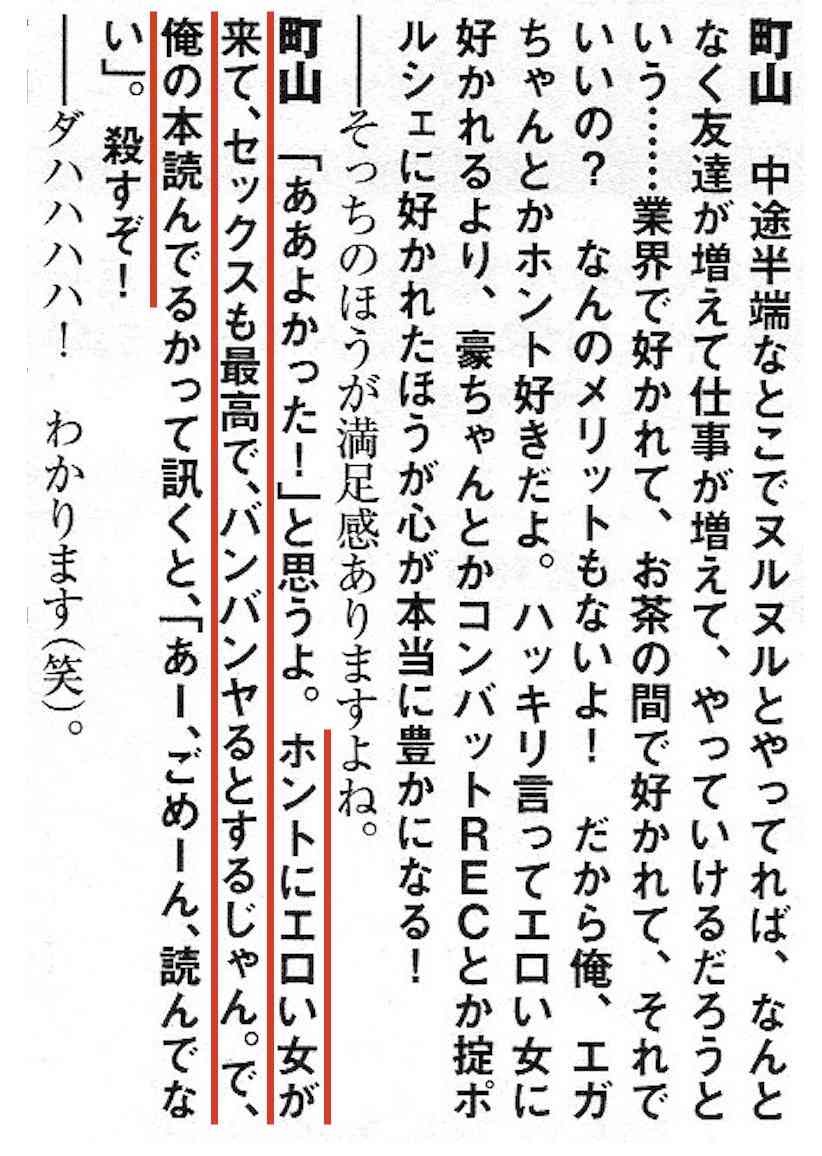 町山　中途半端なとこでヌルヌルとやってれば、なんと
なく友達が増えて仕事が増えて、やっていけるだろうと
いう……業界で好かれて、お茶の間で好かれて、それで
いいの？　なんのメリットもないよ！　だから俺、エガ
ちゃんとかホント好きだよ。ハッキリ言ってエロい女に
好かれるより、豪ちゃんとかコンバットＲＥＣとか掟ポ
ルシェに好かれたほうが心が本当に豊かになる！
――そっちのほうが満足感ありますよね。
町山　「ああよかった！」と思うよ。ホントにエロい女が
来て、セックスも最高で、バンバンヤるとするじゃん。で、
俺の本読んでるかって訊くと、「あー、ごめーん、読んでな
い」。殺すぞ！
――ダハハハハ！　わかります（笑）。